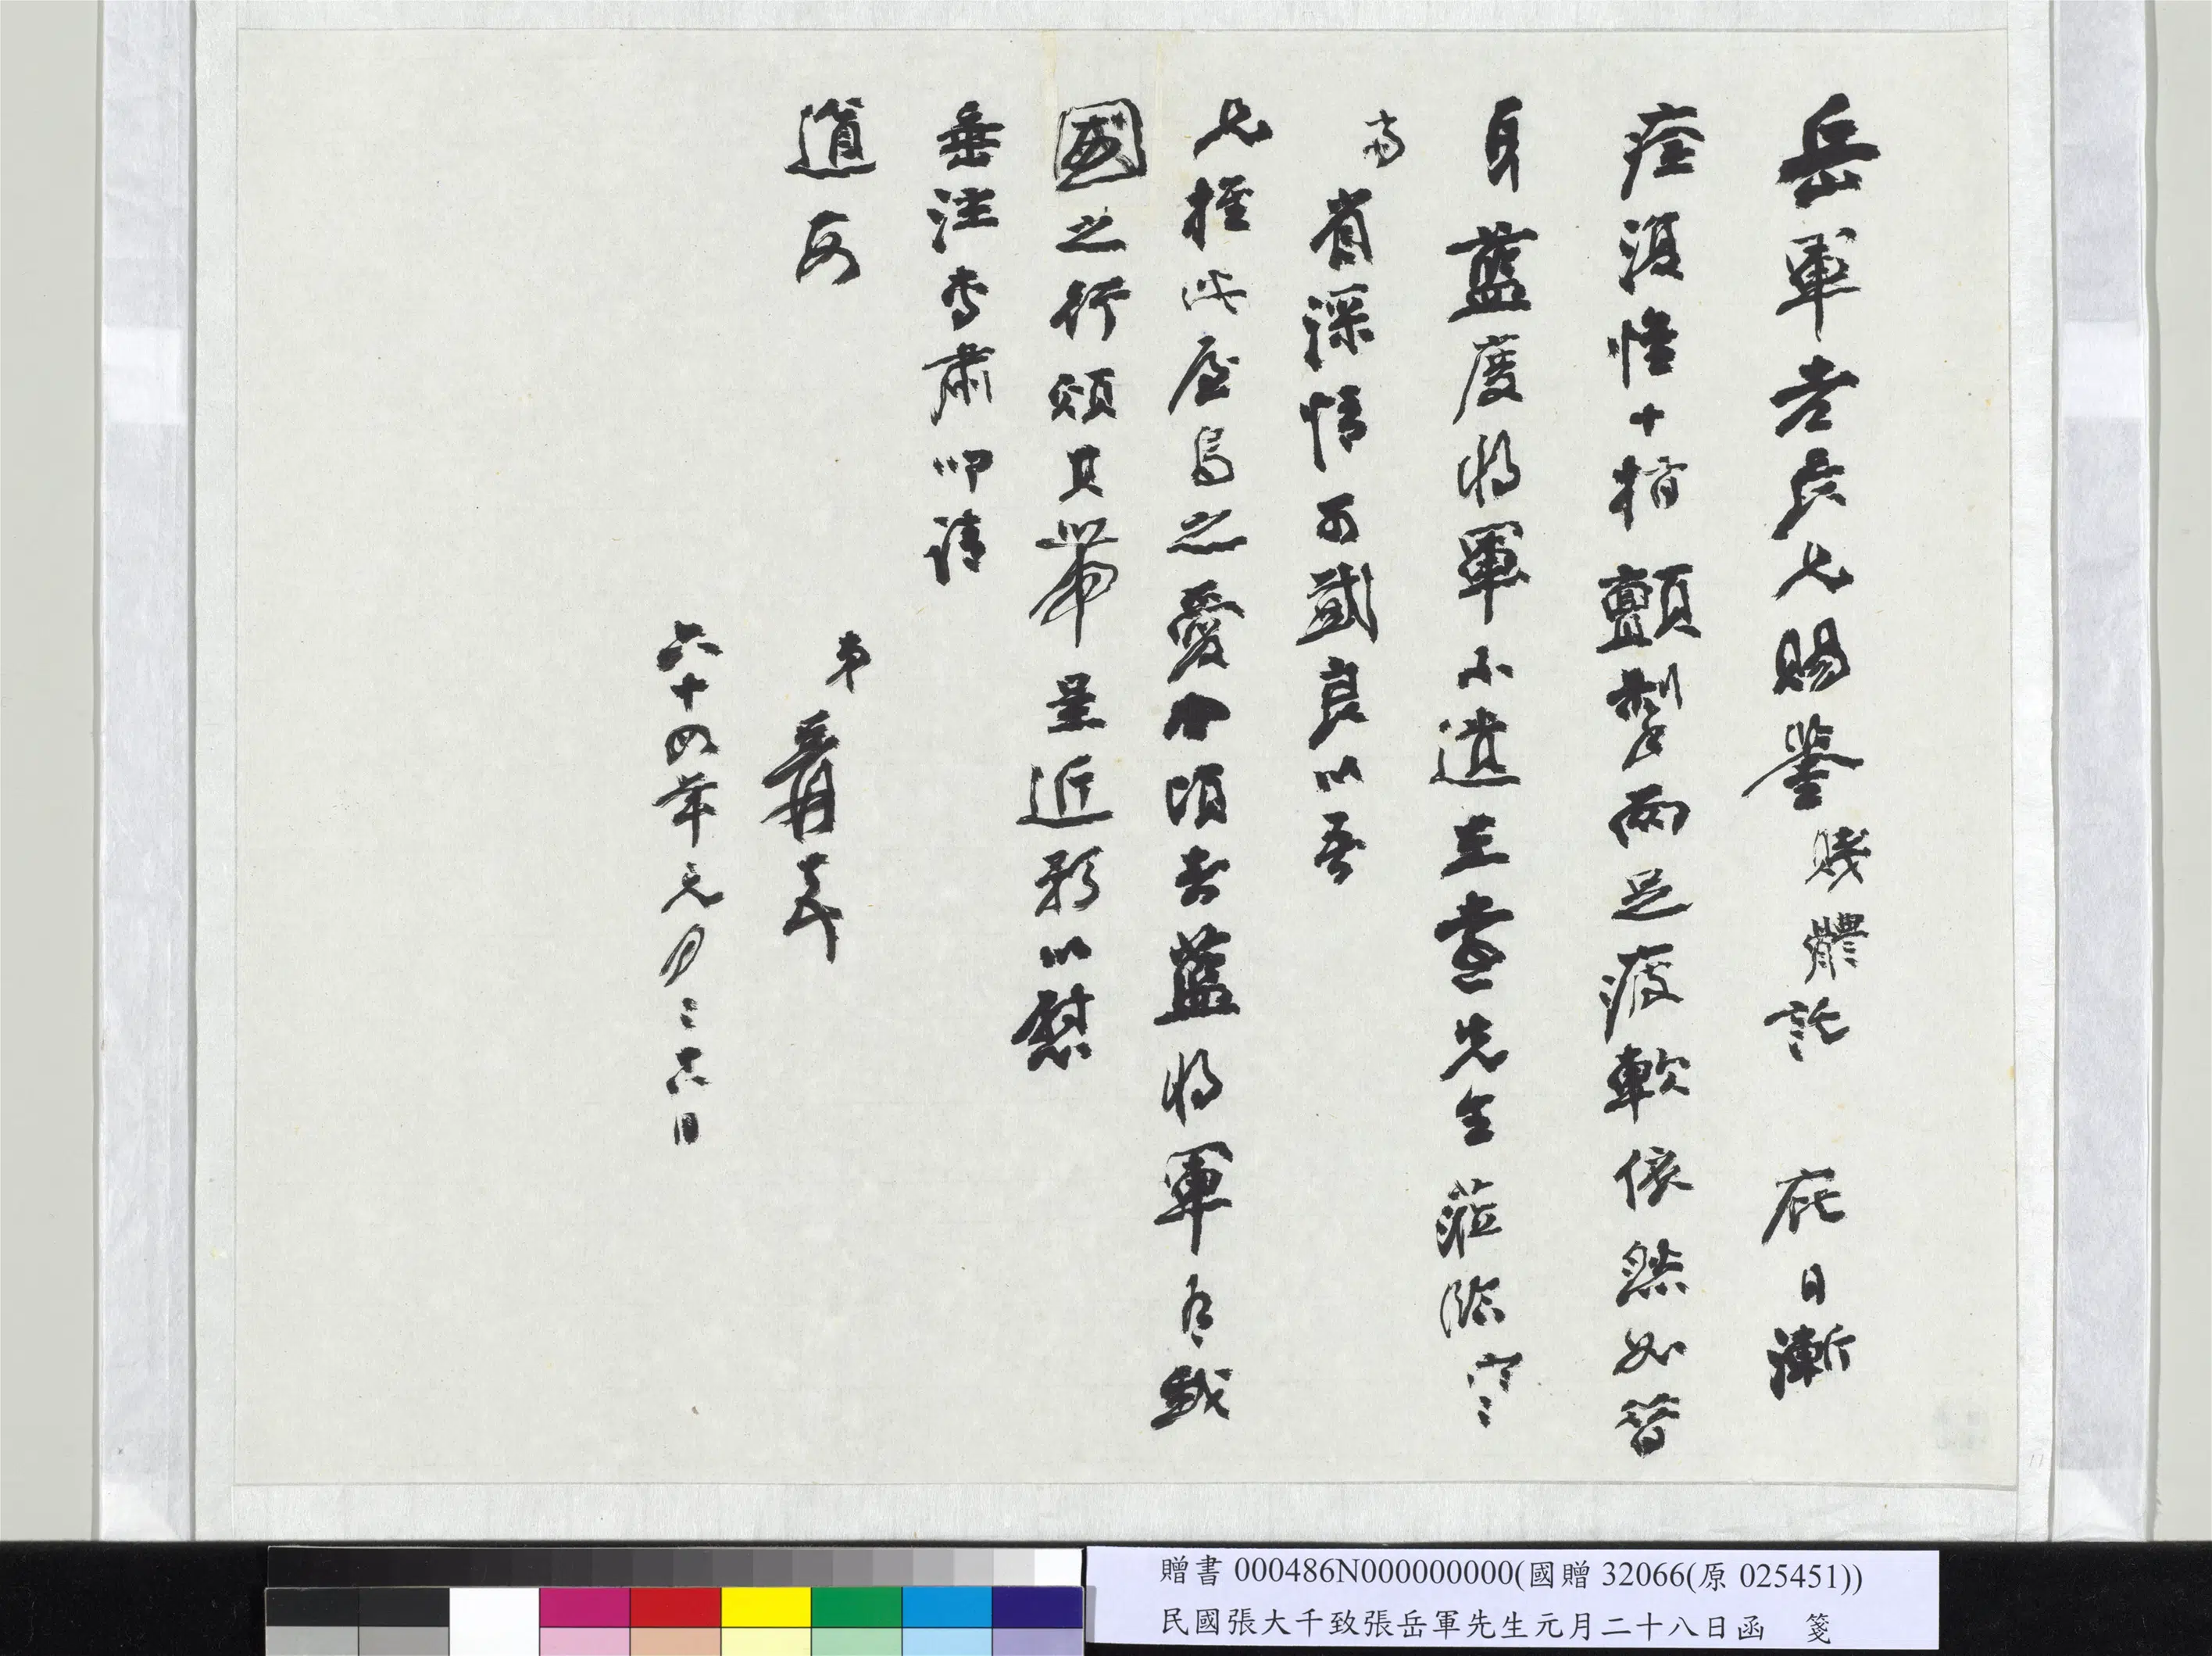 岳軍老長兄賜鑒賤體託 庇日漸
痊復惟十指顫掣兩足疲軟依然如昔
耳藍慶將軍不遺在遠先生蒞臨寒
齋省深情可感良以吾
兄推此屋烏之愛也頃者藍將軍有我
國之行煩其帶呈近影以慰
垂注專肅叩請
道安
弟爰
六十四年元月二十八日
贈書 000486N000000000(國贈 32066(原 025451))
民國張大千致張岳軍先生元月二十八日函 箋